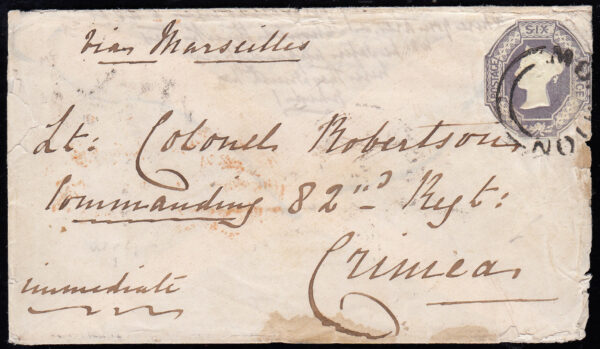 via Marseilles
SIX
POSTAGE
Lt. Colonel Robertson
Commanding 82nd Regt:
Crimea
immediate